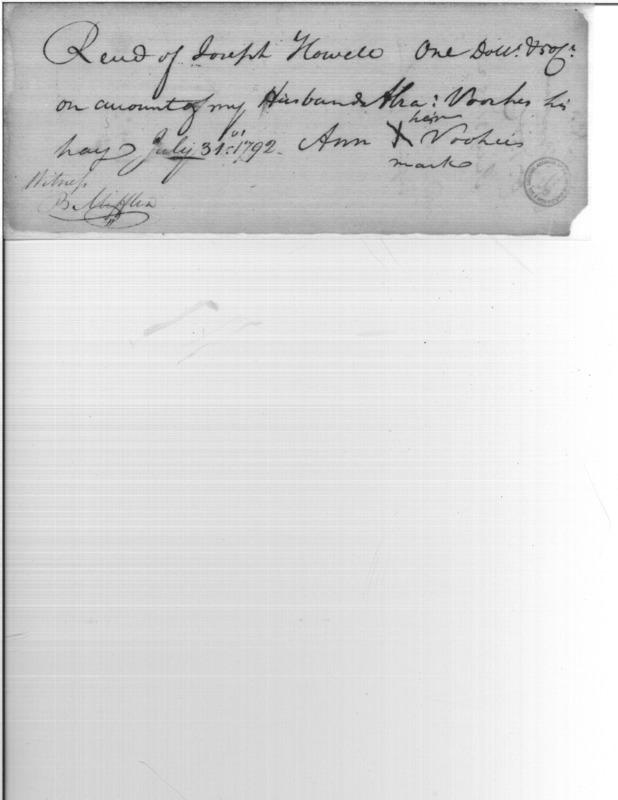 Recd of Joseph Howell One Dollr. &
on account of my Husband Abra: Voorhes his
pay July 31st. 1792. Ann X Vooheis
her
mark
Witness
B. Mifflin